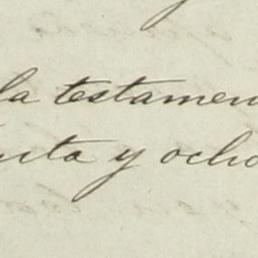 la testamen
enta y ocho